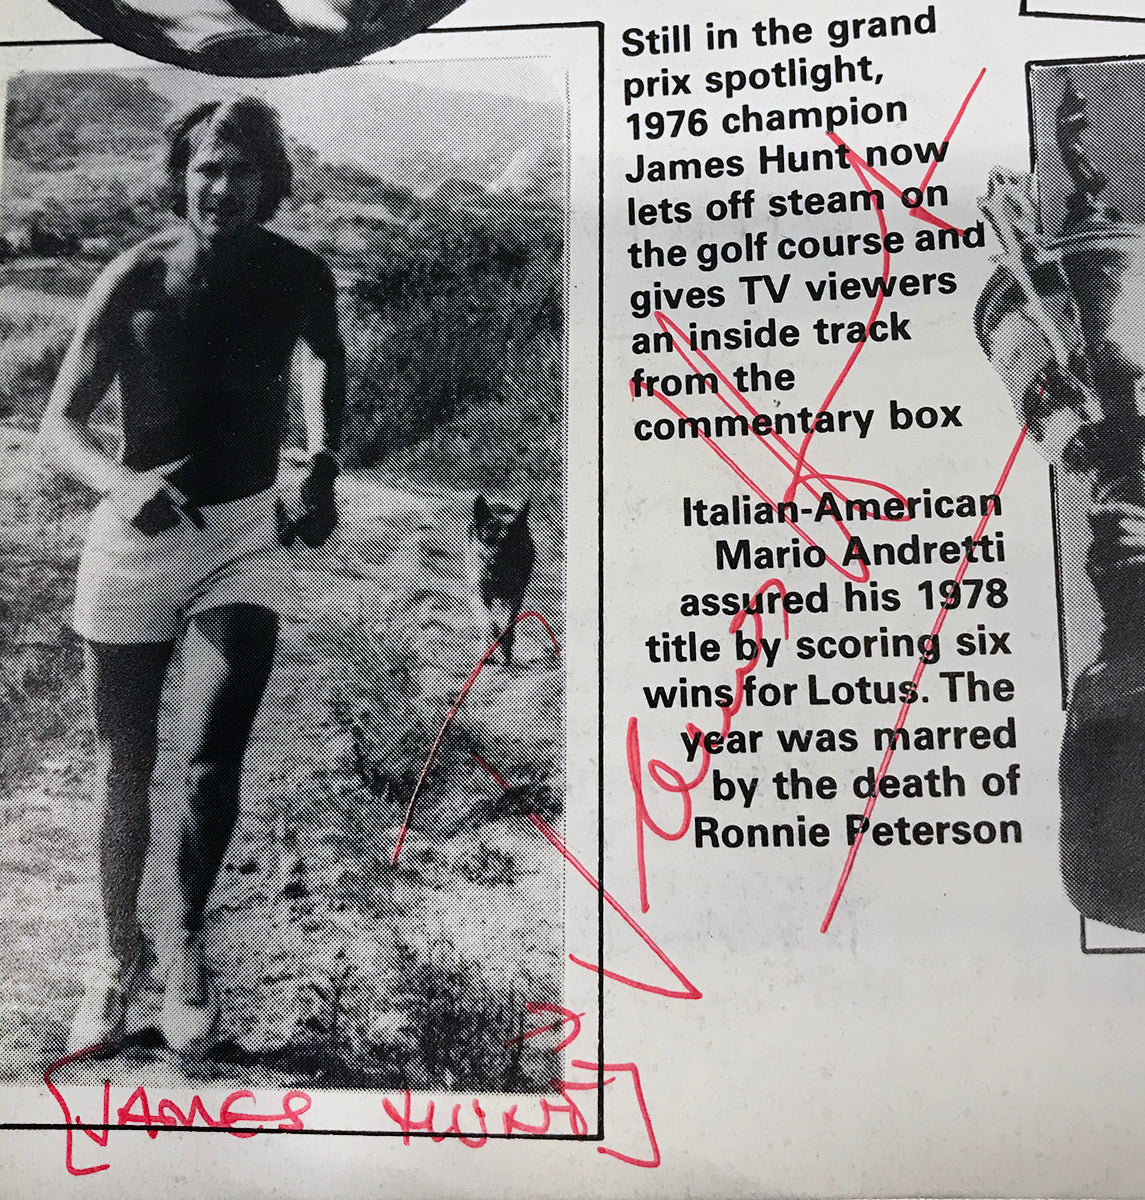 Still in the grand
prix spotlight,
1976 champion
James Hunt now
lets off steam on
the golf course and
gives TV viewers
an inside track
from the
commentary box
Italian-American
Mario Andretti
assured his 1978
title by scoring six
wins for Lotus. The
year was marred
by the death of
Ronnie Peterson
[JAMES HUNT]